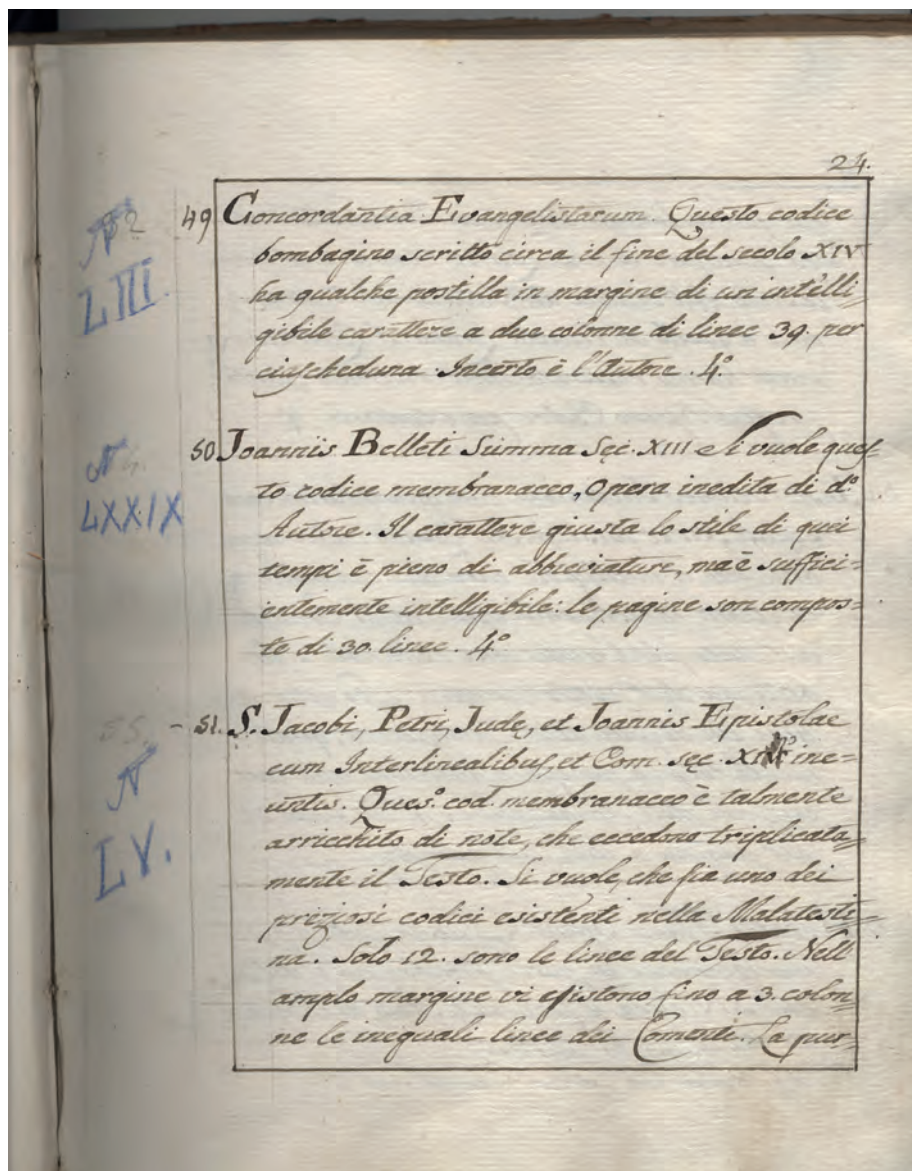 24.
49 Concordantia Evangelistarum. Questo codice
bombagino scritto circa il fine del secolo XIV
ha qualche postilla in margine di un intelli,
gibile carattere a due colonne di linee 39. per
ciascheduna. Incerto è l'Autore. 4.°
N
LIII.
50 Joannis Belleti Summa Sec. XIII Si vuole ques,
to codice membranaceo, Opera inedita di d.°
Autore. Il carattere giusta lo stile di quei
tempi è pieno di abbreviature, ma è suffici=
entemente intelligibile: le pagine son compos=
te di 30. linee. 4.°
N
LXXIX
- 51. S. Jacobi, Petri, Jude, et Joannis Epistolae
cum Interlinealibus, et Com. sec. ine=
untis. Ques.° cod. membranaceo è talmente
arricchito di note, che eccedono triplicata=
mente il Testo. Si vuole, che sia uno dei
preziosi codici esistenti nella Malatesti=
na. Solo 12. sono le linee del Testo. Nell'
amplo margine vi esistono fino a 3. colon=
ne le ineguali linee dei Comenti. La pur=
55.
N
LV.